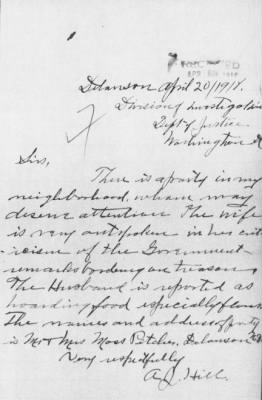 RECEIVED
APR
Delanson April 20/1918.
Division of Investigation
Dept of Justice
Washington
Sirs,
There is a party in my
neighborhood, whom may
deserve attention. The wife
is very outspoken in her crit-
icism of the Government
remarks bordering on treason,
The Husband is reported as
hoarding food especially flour.
The names and address of party
is Mr & Mrs Moss Pitcher, Delanson
Very respectfully
A. J. Hill.